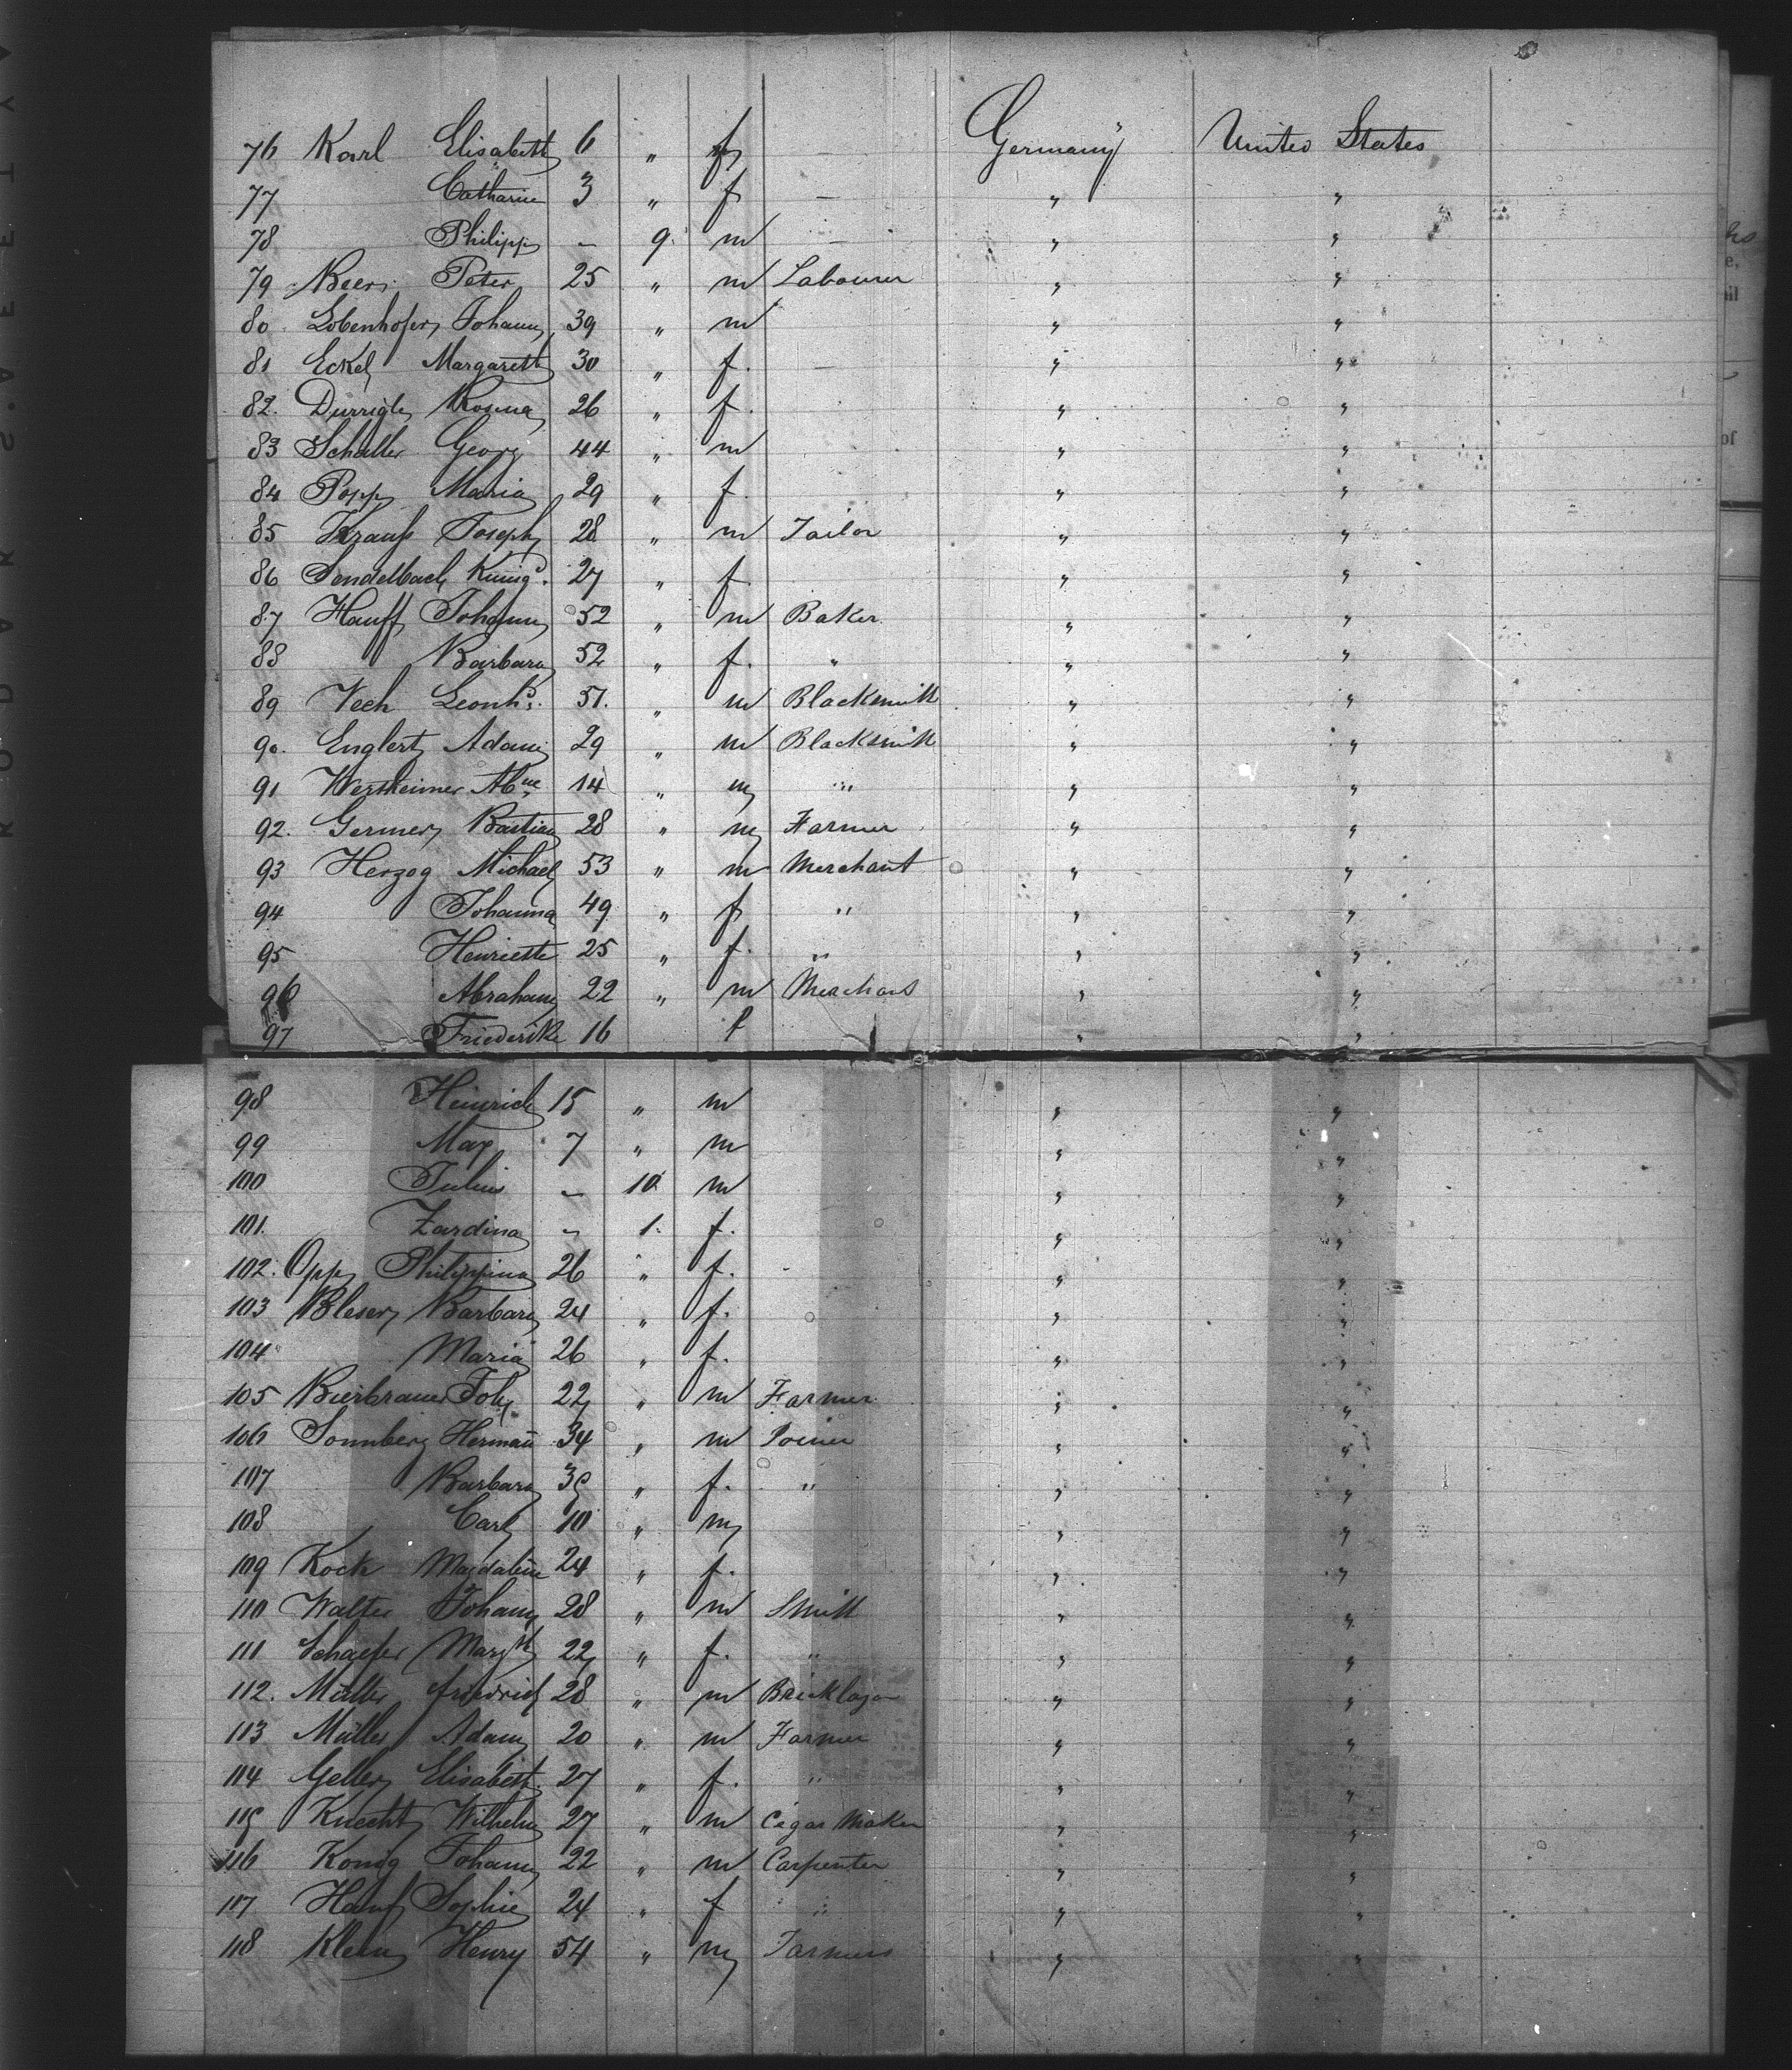 76 Karl Elisabeth 6 " f — Germany United States
77 Catharine 3 " f — " "
78 Philipp - 9. m — " "
79 Beer Peter 25 " m Labourer " "
80 Lobenhofer Johann 39 " m " "
81 Eckel Margareth 30 " f. — " "
82. Durrigl Rosina 26 " f. " "
83 Schaller Georg 44 " m " "
84 Popp Maria 29 " f. " "
85 Krauss Joseph 28 " m Tailor " "
86 Sendelbach Kunig. 27 " f. " "
87 Hauff Johann 52 " m Baker " "
88 Barbara 52 " f. " " "
89 Vech Leonhd. 51. " m Blacksmith " "
90. Englert Adam 29 " m Blacksmith " "
91 Wertheimer 14 " m " " "
92. Germer Bastian 28 " m Farmer " "
93 Herzog Michael 53 " m Merchant " "
94 Johanna 49 " f " " "
95 Henriette 25 " f. " " "
96 Abraham 22 " m Merchant " "
97 Friederike 16 f " "
98 Heinrich 15 " m " "
99 Max 7 " m " "
100 Julius - 10 m " "
101. Zardina - 1. f. " "
102. Opp Philippina 26 " f. - " "
103 Bleser Barbara 24 " f. " "
104 Maria 26 " f. " "
105 Bierbrauer Joh 22 " m Farmer " "
106 Sonnberg Hermann 34 " m Joiner " "
107 Barbara 35 " f. " " "
108 Carl 10 " m " "
109 Kock Magdalene 24 " f. " "
110 Walter Johann 28 " m Smith " "
111 Schaefer Margth 22 " f. " " "
112. Müller Friedrich 28 " m Bricklayer " "
113 Müller Adam 20 " m Farmer " "
114 Geller Elisabeth. 27 " f. " " "
115 Knecht Wilhelm 27 " m Cigar Maker " "
116 Konig Johann 22 " m Carpenter " "
117 Hauf Sophie 24 " f " " "
118 Klein Henry 54 " m Farmers " "